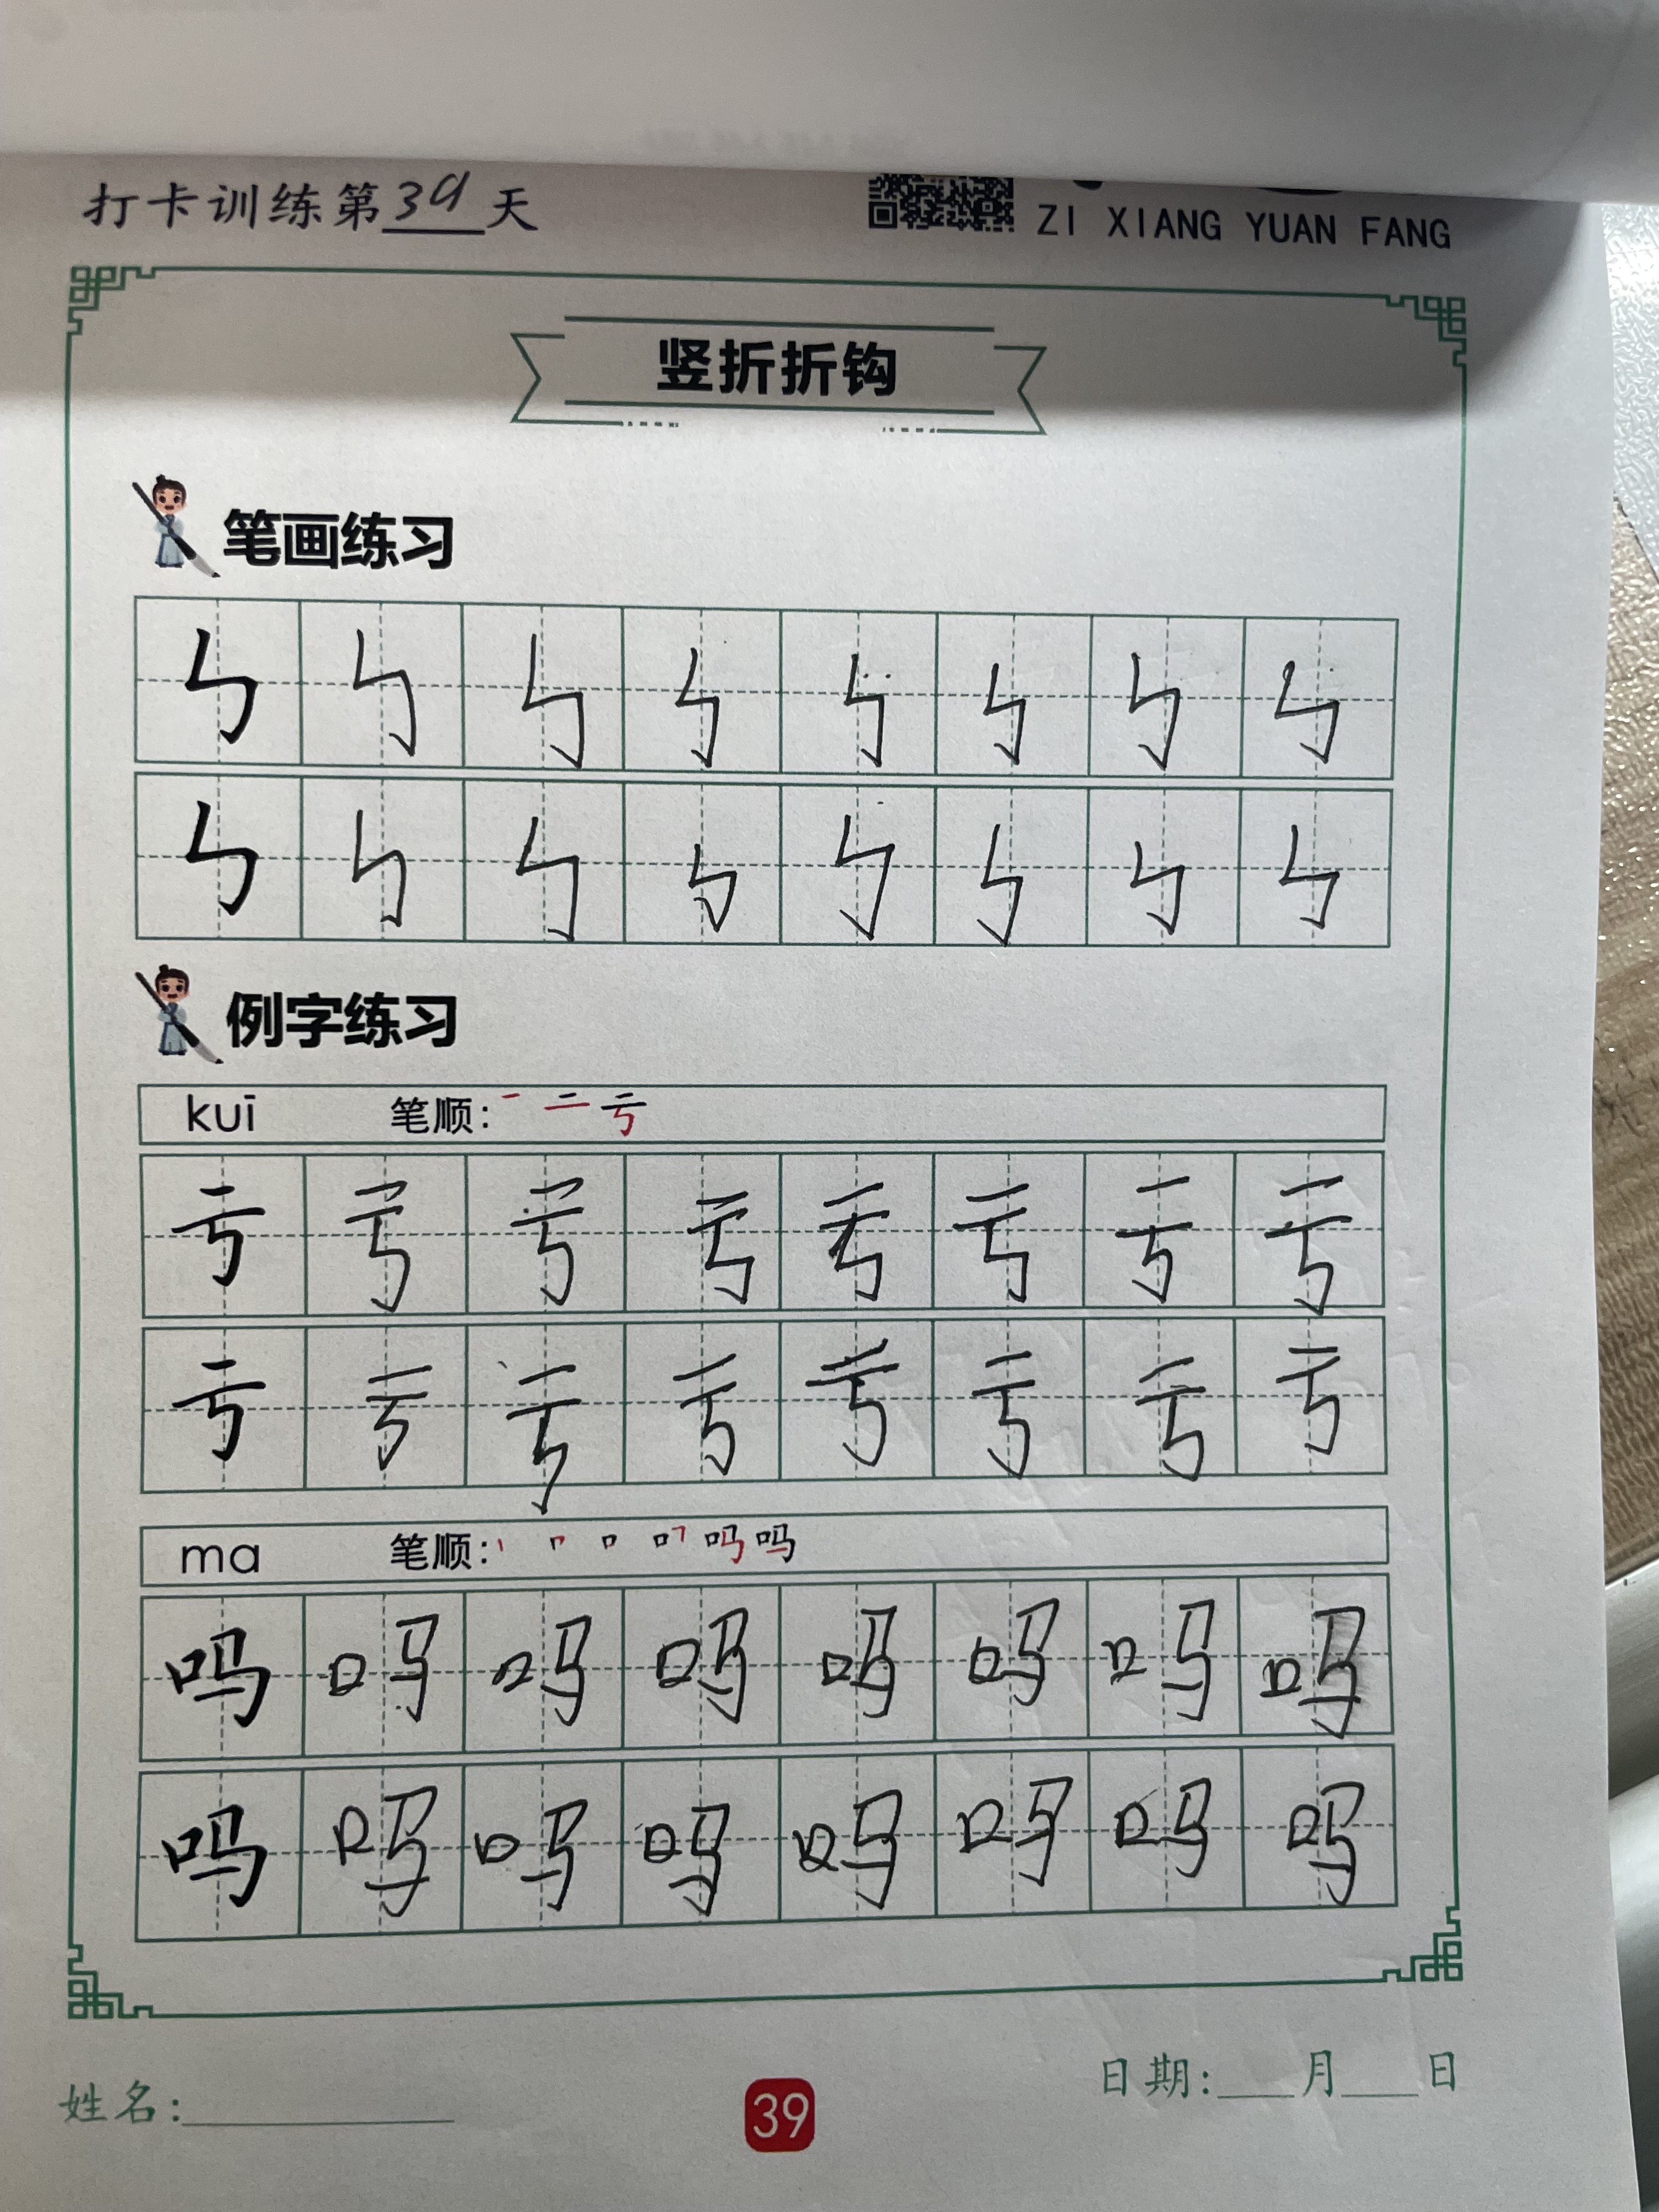 打卡训练第39天
ZI XIANG YUAN FANG
竖折折钩
笔画练习
㇉ ㇉ ㇉ ㇉ ㇉ ㇉ ㇉ ㇉
㇉ ㇉ ㇉ ㇉ ㇉ ㇉ ㇉ ㇉
例字练习
kuī 笔顺: 一 二 亏
亏 亏 亏 亏 亏 亏 亏 亏
亏 亏 亏 亏 亏 亏 亏 亏
ma 笔顺:
吗 吗 吗 吗 吗 吗 吗 吗
吗 吗 吗 吗 吗 吗 吗 吗
姓名:
39
日期: 月 日